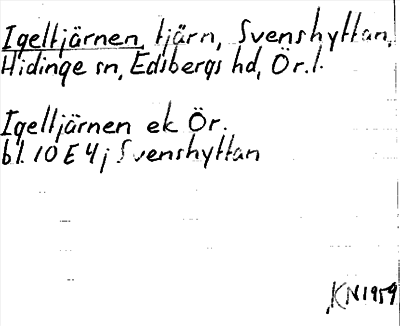 Igeltjärnen, tjärn, Svenshyttan,
Hidinge sn, Edsbergs hd, Ör. l.
Igeltjärnen ek Ör.
bl. 10 E 4 j Svenshyttan
KN 1959